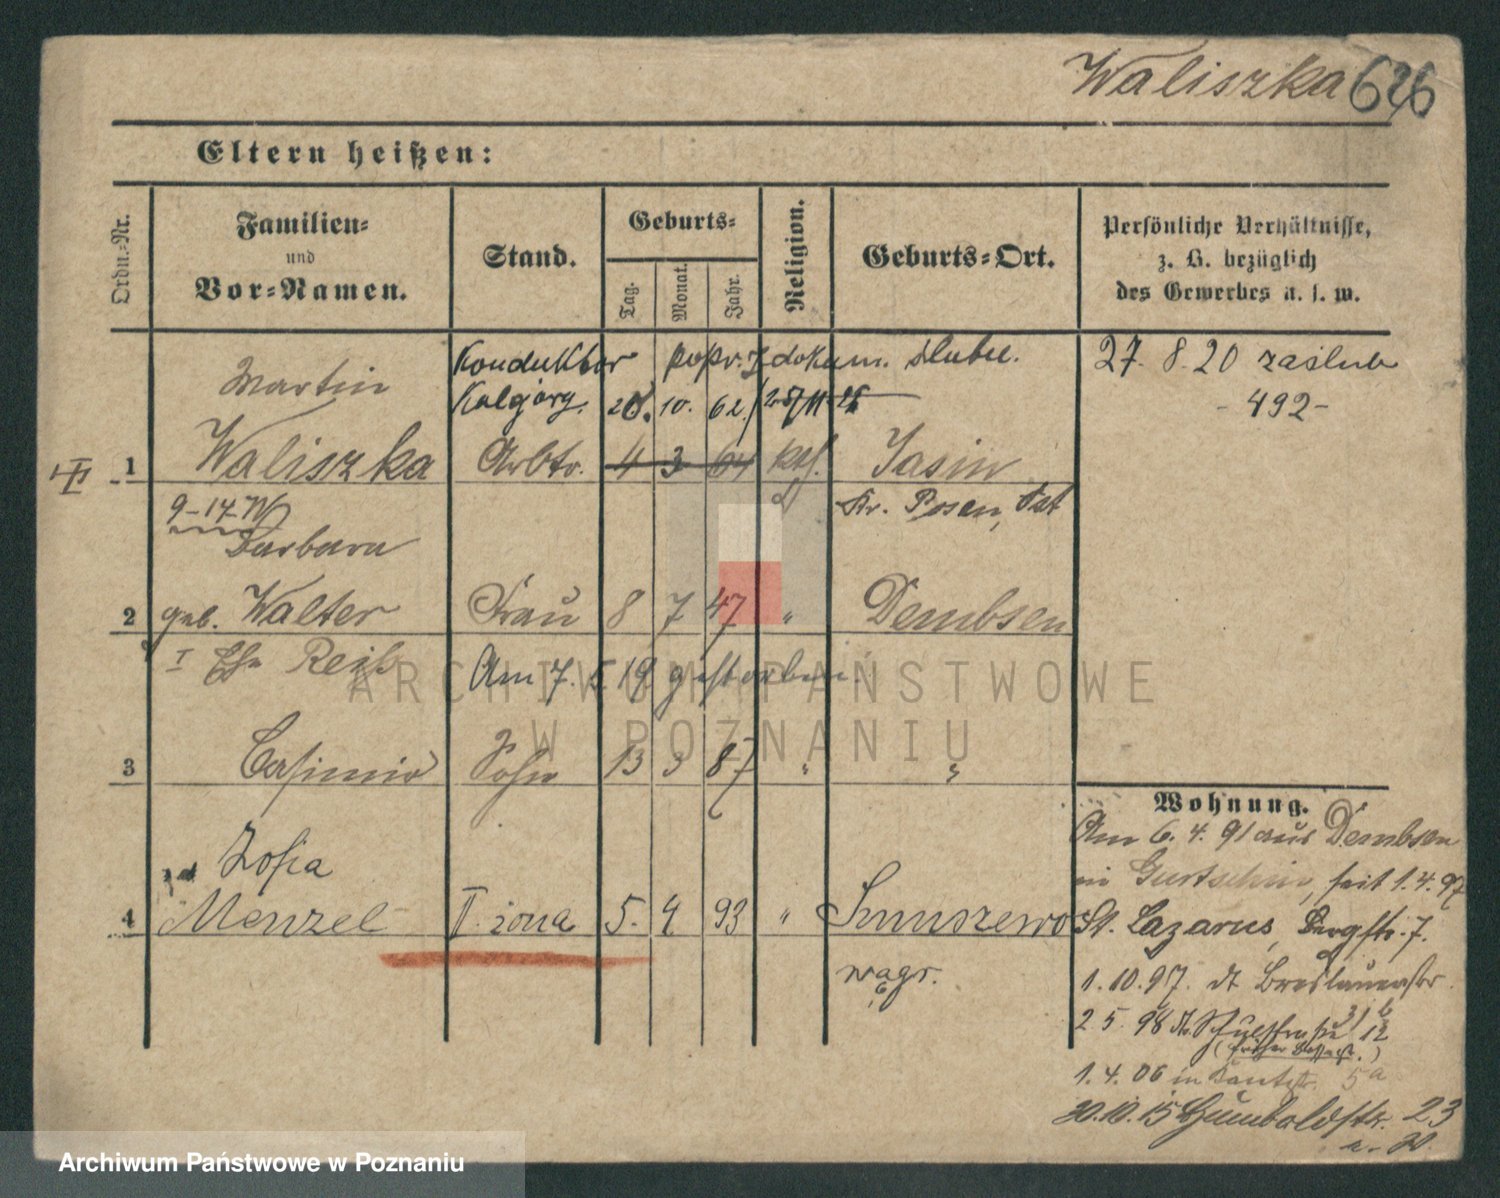 Waliszka 626
Eltern heißen:
Ordn.=Nr.
Familien=
und
Vor=Namen.
Stand.
Geburts=
Tag.
Monat.
Jahr.
Religion.
Geburts=Ort.
Persönliche Verhältnisse,
z. B. bezüglich
des Gewerbes u. s. w.
Konduktor popr. z dokum. slubu.
27. 8. 20 zaslub
- 492 -
Martin Kolejowy. 28. 10. 62.
1 Waliszka Arbtr. 4 3 64 kth. Jasin
Kr. Posen, Ost
9-14-W
Barbara
2 geb. Walter Frau 8 7 47 " Dembsen
I Ehe Reiß Am 7. 19 gestorben
3 Casimir Sohn 13 3 87 " "
Zofia
4 Menzel II. żona 5. 4 93 " Smuszewo
wągr.
Wohnung.
Am 6. 4. 91 aus Dembsen
in Gurtschin, seit 1. 4. 97
St. Lazarus, Bergstr. 7.
1. 10. 97. dt Breslauerstr.
2 5. 98 Schulstraße 12
1. 4. 06 in Kantstr. 5a
30. 10. 15 Humboldstr. 23
ARCHIWUM PAŃSTWOWE
W POZNANIU
Archiwum Państwowe w Poznaniu